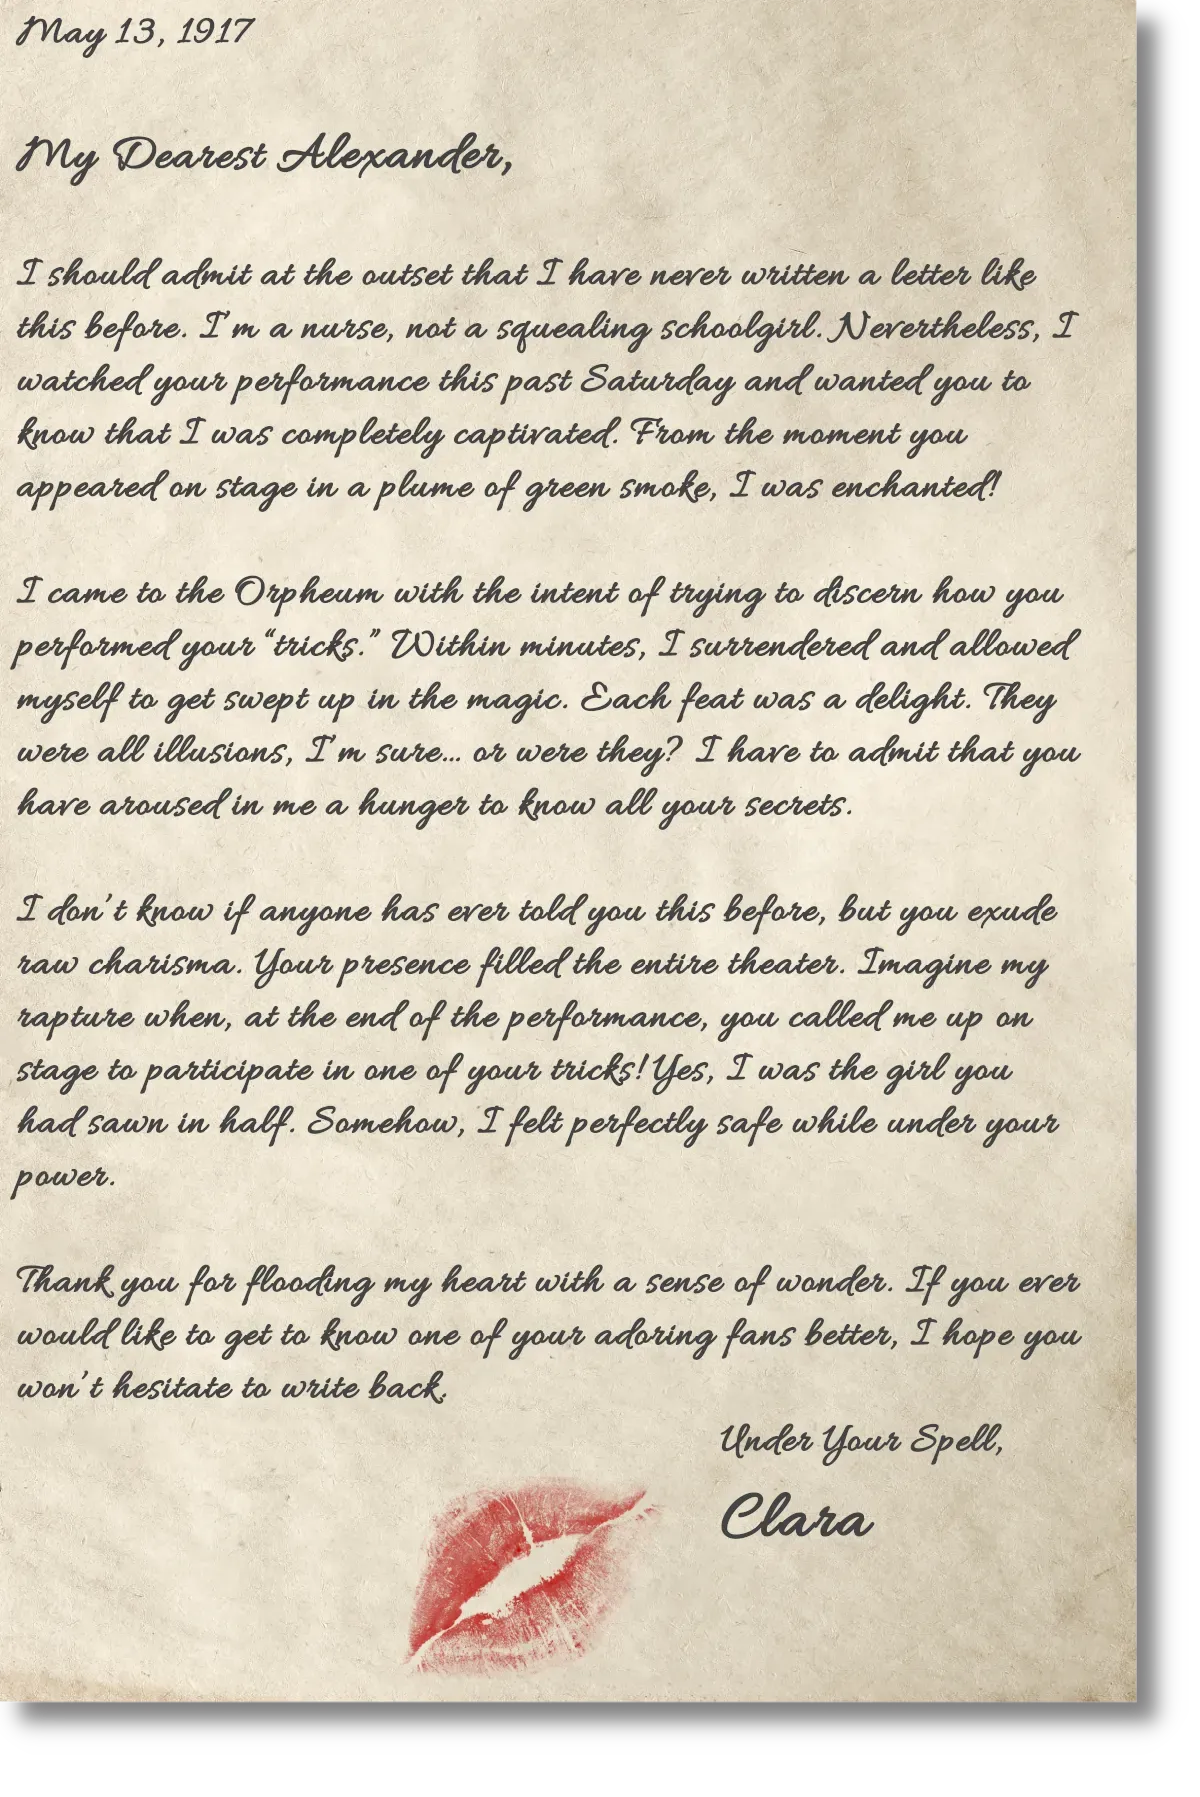 May 13, 1917
My Dearest Alexander,
I should admit at the outset that I have never written a letter like
this before. I'm a nurse, not a squealing schoolgirl. Nevertheless, I
watched your performance this past Saturday and wanted you to
know that I was completely captivated. From the moment you
appeared on stage in a plume of green smoke, I was enchanted!
I came to the Orpheum with the intent of trying to discern how you
performed your “tricks.” Within minutes, I surrendered and allowed
myself to get swept up in the magic. Each feat was a delight. They
were all illusions, I'm sure... or were they? I have to admit that you
have aroused in me a hunger to know all your secrets.
I don't know if anyone has ever told you this before, but you exude
raw charisma. Your presence filled the entire theater. Imagine my
rapture when, at the end of the performance, you called me up on
stage to participate in one of your tricks! Yes, I was the girl you
had sawn in half. Somehow, I felt perfectly safe while under your
power.
Thank you for flooding my heart with a sense of wonder. If you ever
would like to get to know one of your adoring fans better, I hope you
won't hesitate to write back.
Under Your Spell,
Clara